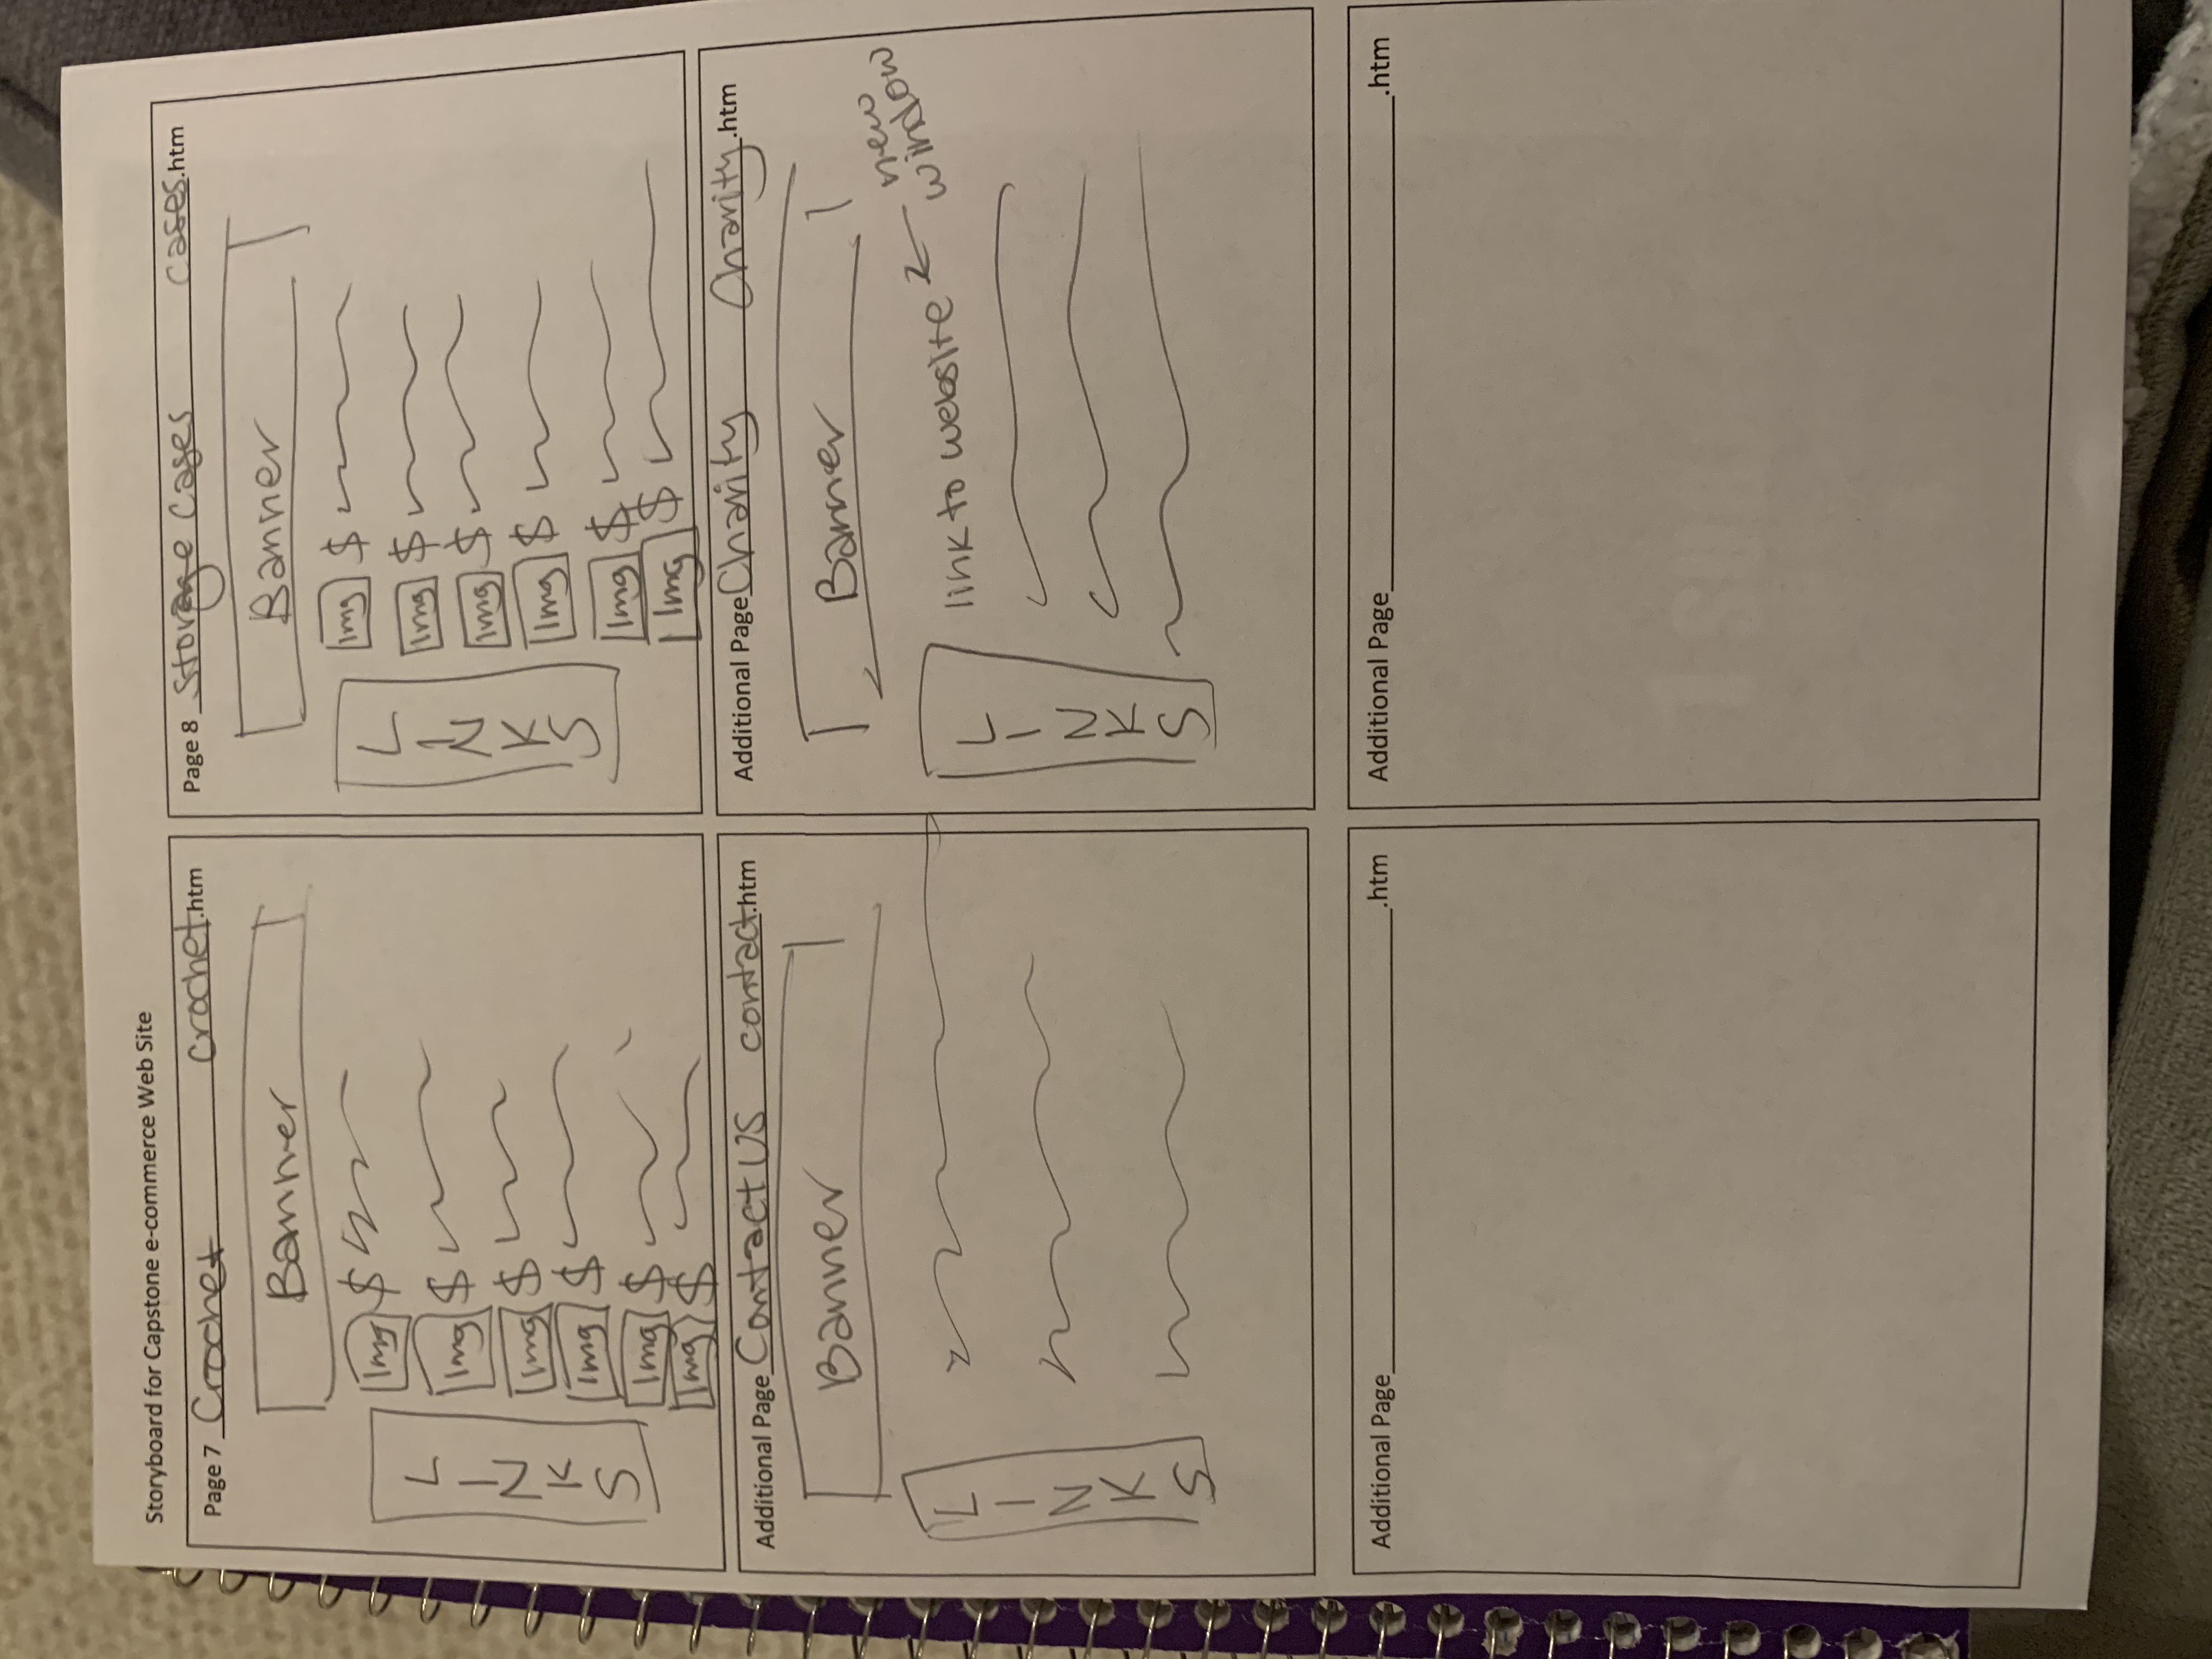 Storyboard for Capstone e-commerce Web Site
Page 7 Crochet crochet.htm
Banner
LINKS
Img $
Img $
Img $
Img $
Img $
Img $
Page 8 Storage Cases cases.htm
Banner
LINKS
Img $
Img $
Img $
Img $
Img $
Img $
Additional Page Contact US contact.htm
Banner
LINKS
Additional Page Charity Charity.htm
Banner
LINKS
link to website
new
window
Additional Page .htm
Additional Page .htm